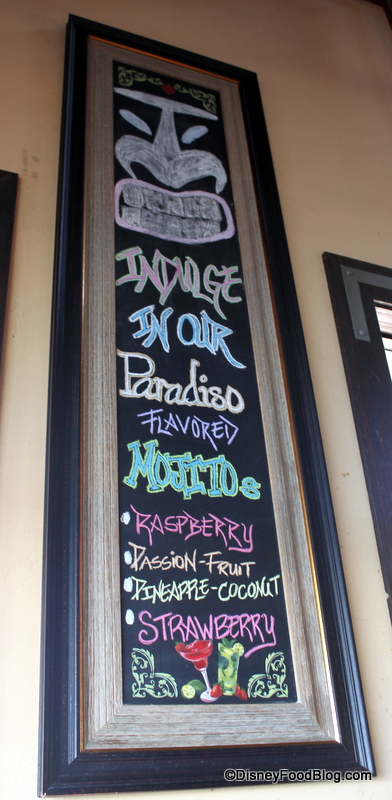 INDULGE
IN OUR
Paradiso
FLAVORED
MOJITOs
RASPBERRY
PASSION-FRUIT
PINEAPPLE-COCONUT
STRAWBERRY
©DisneyFoodBlog.com